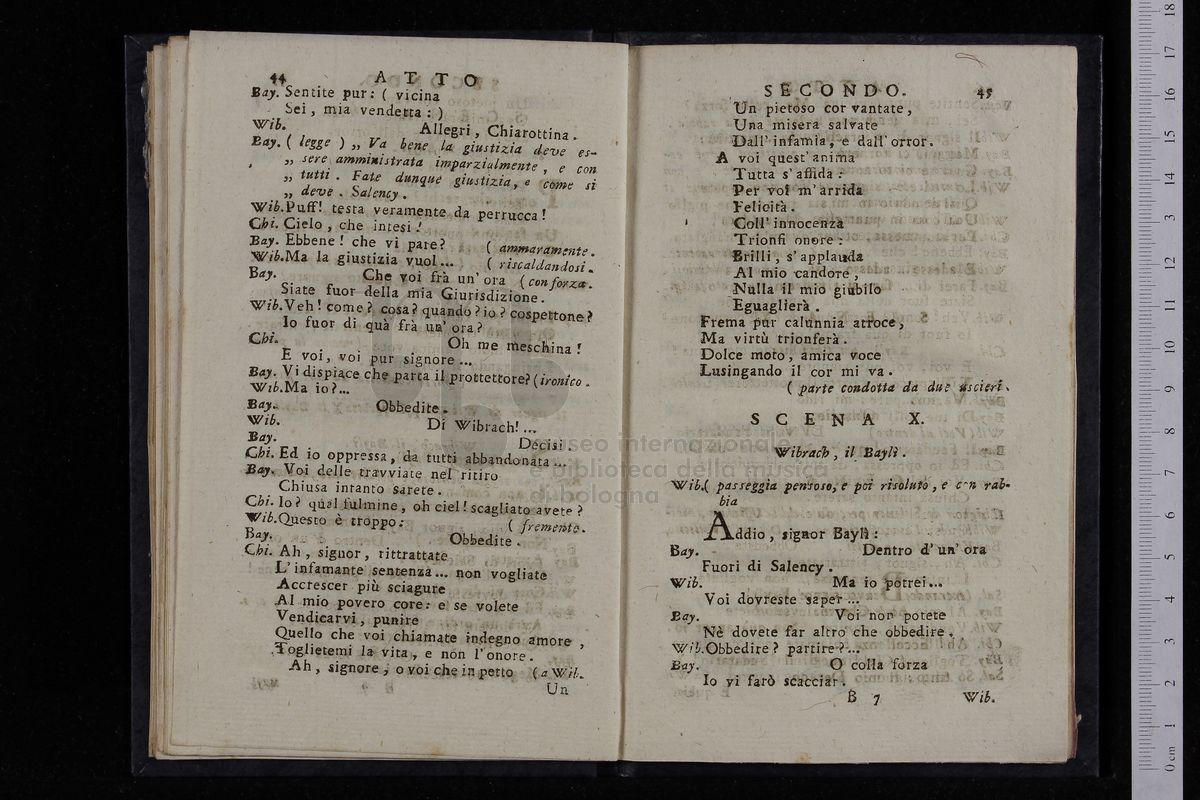 44 ATTO
Bay. Sentite pur: ( vicina
Sei, mia vendetta: )
Wib. Allegri, Chiarottina.
Bay. ( legge ) „ Va bene la giustizia deve es-
„ sere amministrata imparzialmente, e con
„ tutti. Fate dunque giustizia, e come si
„ deve. Salency.
Wib. Puff! testa veramente da perrucca!
Chi. Cielo, che intesi!
Bay. Ebbene! che vi pare? ( ammaramente.
Wib. Ma la giustizia vuol... ( riscaldandosi.
Bay. Che voi frà un' ora ( con forza.
Siate fuor della mia Giurisdizione.
Wib. Veh! come? cosa? quando? io? cospettone?
Io fuor di quà frà un' ora?
Chi. Oh me meschina!
E voi, voi pur signore...
Bay. Vi dispiace che parta il prottettore? ( ironico.
Wib. Ma io?...
Bay. Obbedite.
Wib. Di Wibrach!...
Bay. Decisi.
Chi. Ed io oppressa, da tutti abbandonata...
Bay. Voi delle travviate nel ritiro
Chiusa intanto sarete.
Chi. Io? qual fulmine, oh ciel! scagliato avete?
Wib. Questo è troppo: ( fremente.
Bay. Obbedite.
Chi. Ah, signor, rittrattate
L' infamante sentenza... non vogliate
Accrescer più sciagure
Al mio povero core: e se volete
Vendicarvi, punire
Quello che voi chiamate indegno amore,
Toglietemi la vita, e non l'onore.
Ah, signore, o voi che in petto ( a Wib.
Un
SECONDO. 45
Un pietoso cor vantate,
Una misera salvate
Dall' infamia, e dall' orror.
A voi quest' anima
Tutta s' affida:
Per voi m' arrida
Felicità.
Coll' innocenza
Trionfi onore:
Brilli, s' applauda
Al mio candore,
Nulla il mio giubilo
Eguaglierà.
Frema pur calunnia atroce,
Ma virtù trionferà.
Dolce moto, amica voce
Lusingando il cor mi va.
( parte condotta da due uscieri.
SCENA X.
Wibrach, il Baylì.
Wib. ( passeggia pensoso, e poi risoluto, e con rab-
bia
Addio, signor Baylì:
Bay. Dentro d' un' ora
Fuori di Salency.
Wib. Ma io potrei...
Voi dovreste saper...
Bay. Voi non potete
Nè dovete far altro che obbedire.
Wib. Obbedire? partire?...
Bay. O colla forza
Io vi farò scacciar.
B 7 Wib.
museo internazionale
e biblioteca della musica
di bologna
0 cm 1 2 3 4 5 6 7 8 9 10 11 12 13 14 15 16 17 18